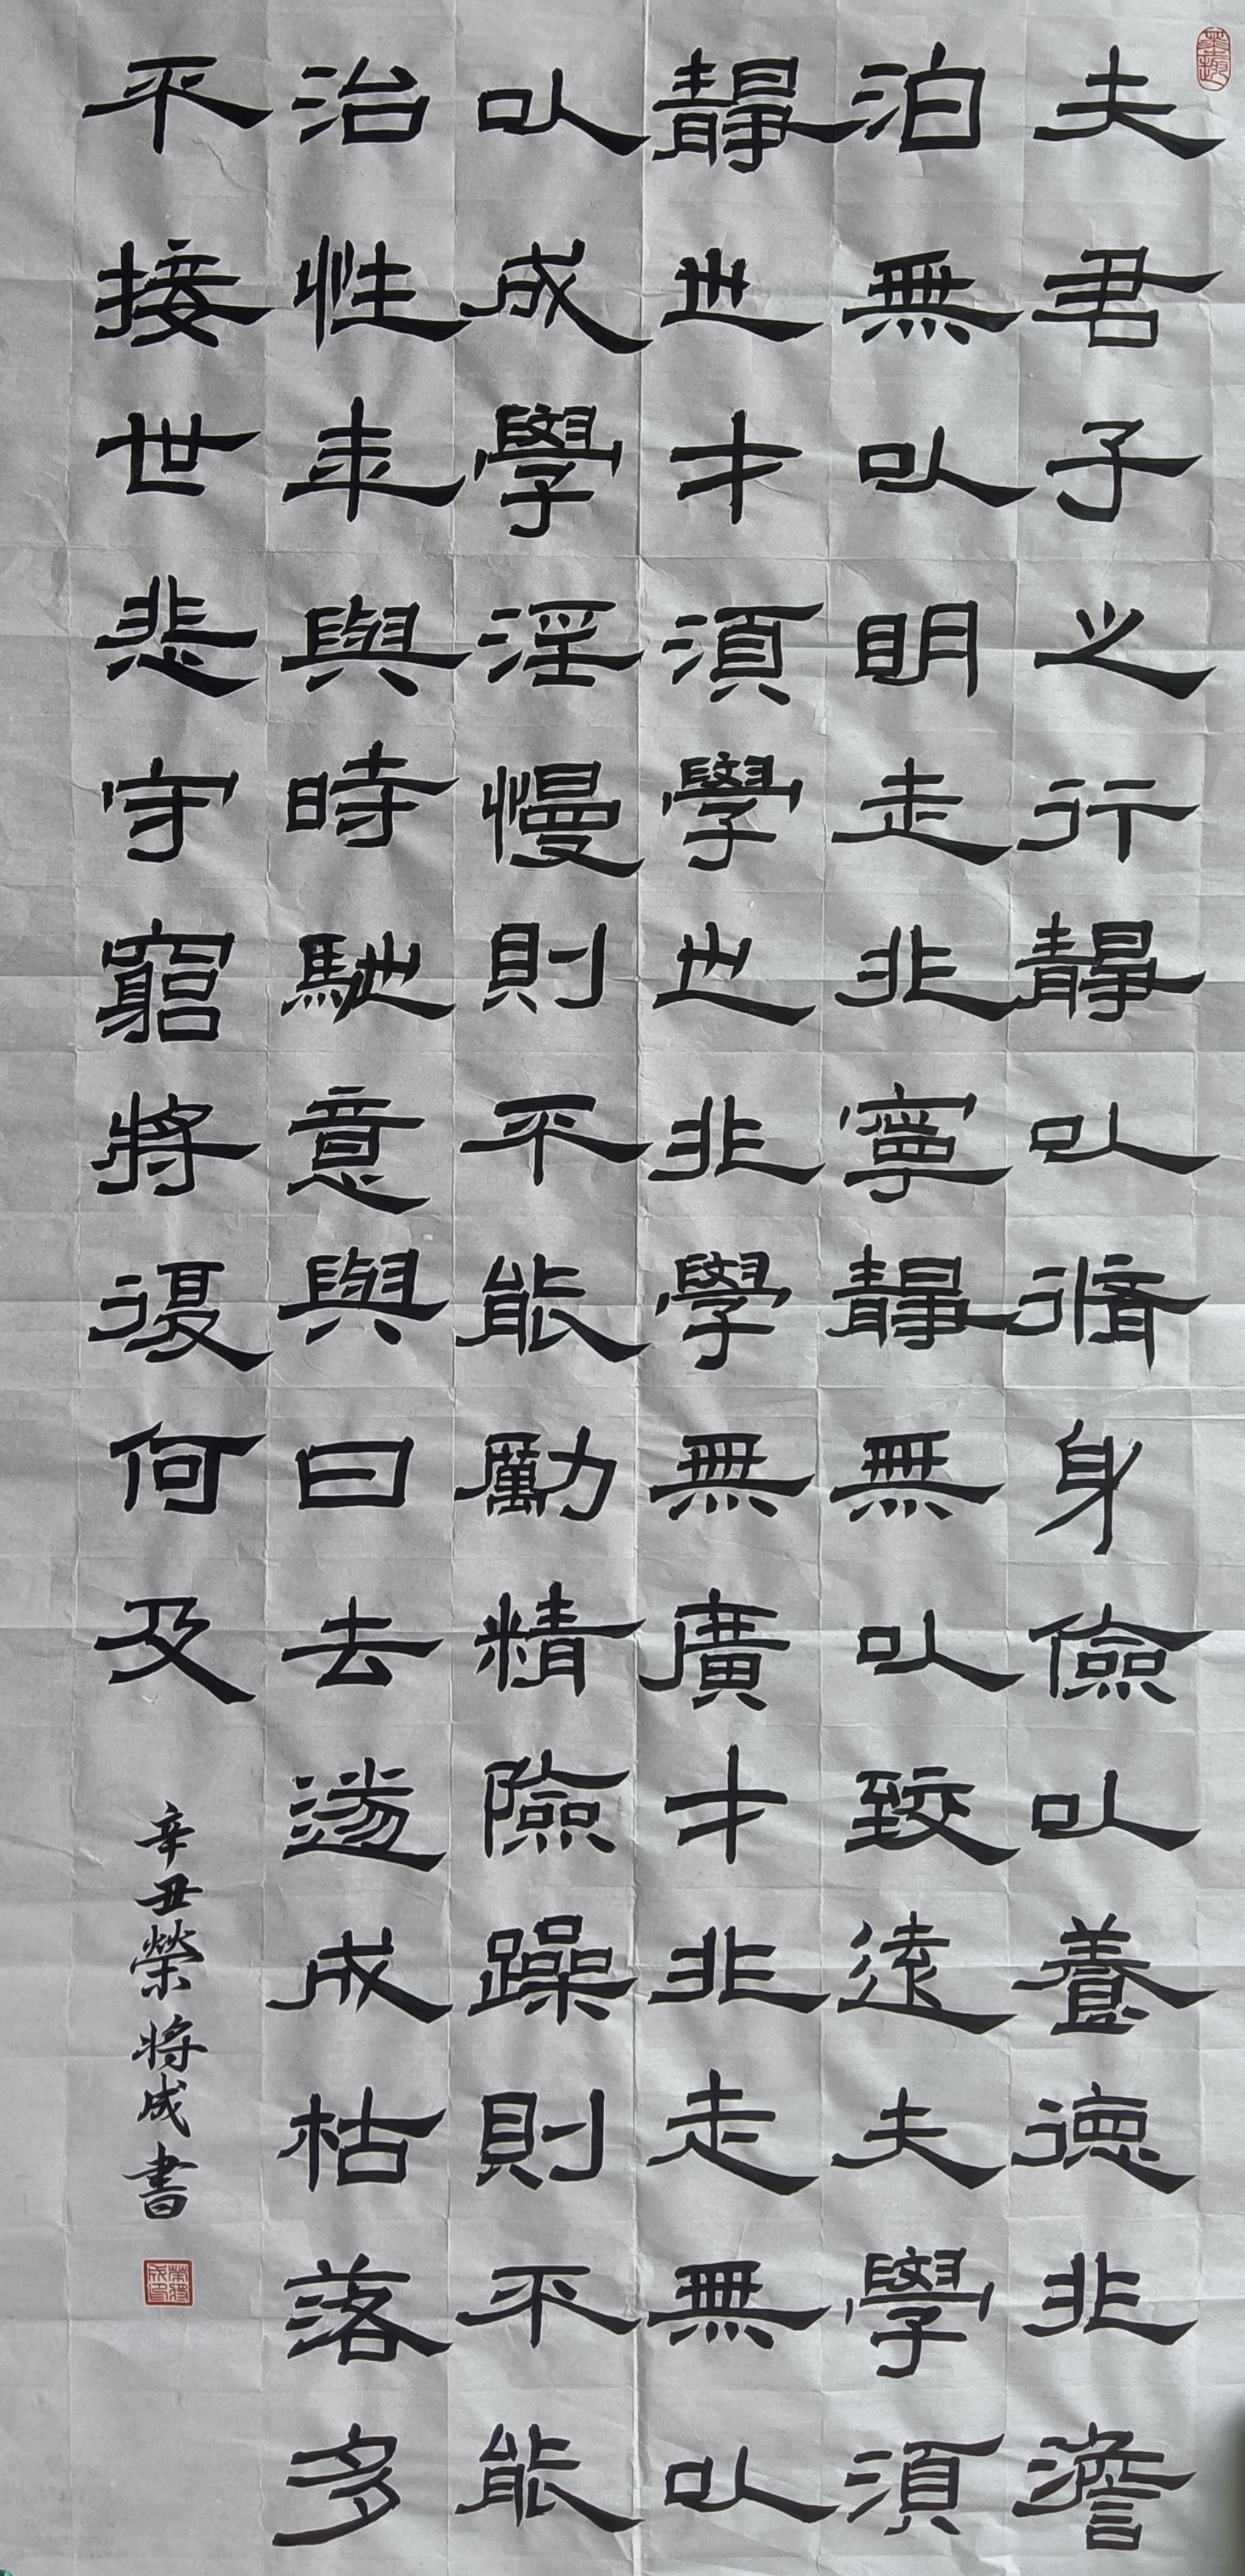 墨趣
夫君子之行靜以脩身儉以養德非澹
泊無以明走非寧靜無以致遠夫學湏
靜也才湏學也非學無廣才非走無以
以成學淫慢則不能勵精險躁則不能
治性年與時馳意與日去遂成枯落多
不接世悲守窮將復何及
辛丑榮將成書
榮將成印